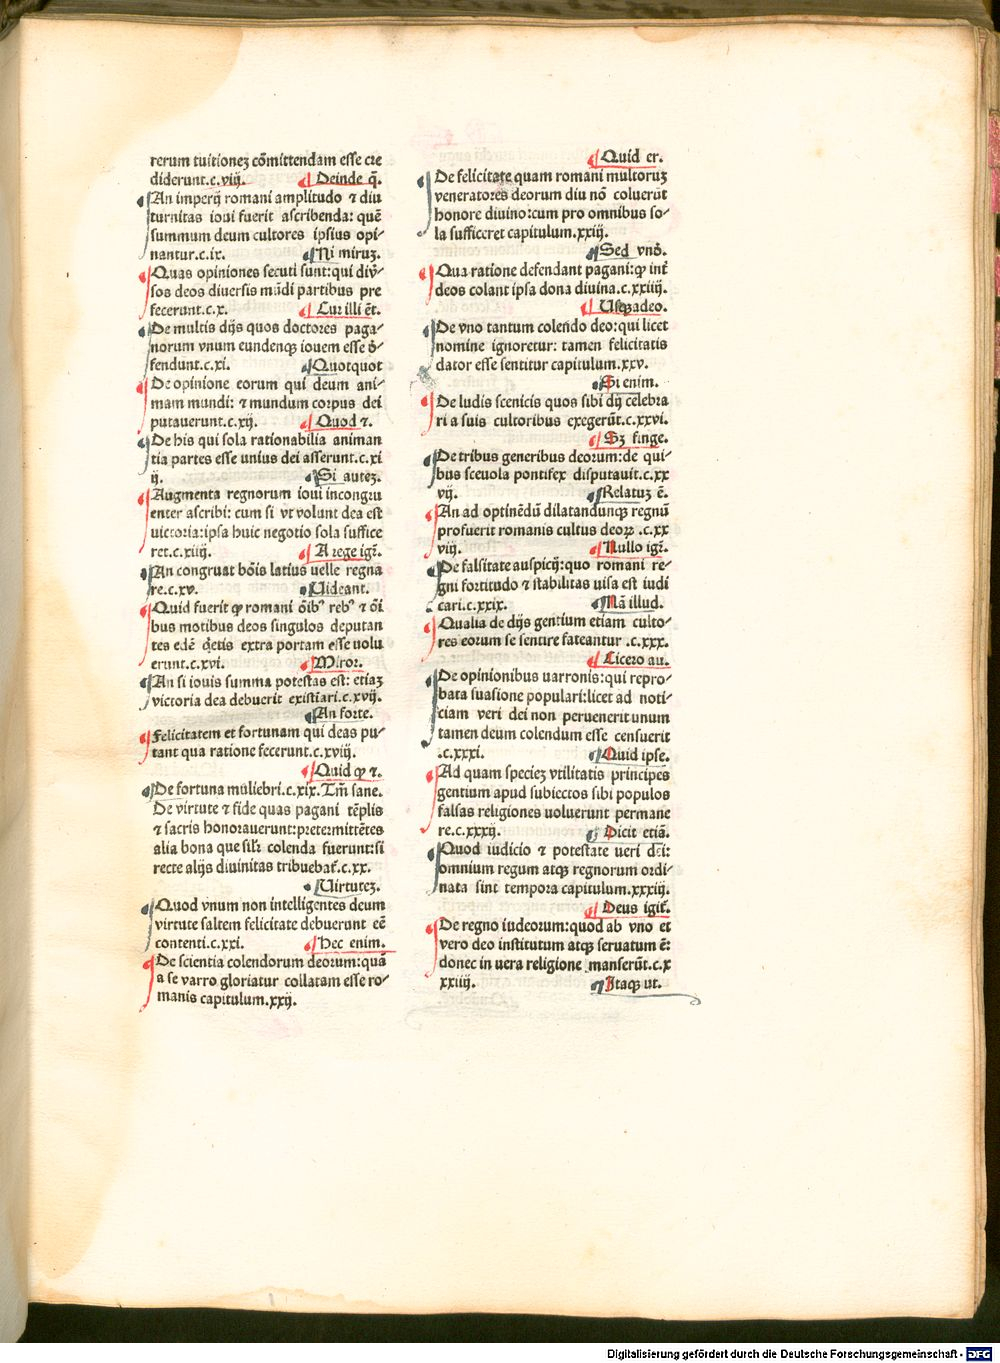 rerum tuitionez cōmittendam esse cre
diderunt.c.viij. Deinde q̄.
An imperij romani amplitudo ⁊ diu
turnitas ioui fuerit ascribenda: quē
summum deum cultores ipsius opi⸗
nantur.c.ix. Ni miruz.
Quas opiniones secuti sunt:qui diũ⸗
sos deos diuersis mūdi partibus pre
fecerunt.c.x. Cur illi ēt.
De multis dijs quos doctores paga⸗
norum vnum eundenqꝫ iouem esse d̄⸗
fendunt.c.xi. Quotquot
De opinione eorum qui deum ani⸗
mam mundi: ⁊ mundum corpus dei
putauerunt.c.xij. Quod ⁊.
De his qui sola rationabilia animan
tia partes esse unius dei asserunt.c.xi
ij. Si autez.
Augmenta regnorum ioui incongru
enter ascribi: cum si vt volunt dea est
uictoria:ipsa huic negotio sola suffice
ret.c.xiiij. A rege igr̄.
An congruat bōis latius uelle regna
re.c.xv. Uideant.
Quid fuerit ꝙ romani ōibꝰ rebꝰ ⁊ ōi
bus motibus deos singulos deputan
tes edē q̄etis extra portam esse uolu
erunt.c.xvi. Miror.
An si iouis summa potestas est: etiaz
victoria dea debuerit existiari.c.xvij.
An forte.
Felicitatem et fortunam qui deas pu⸗
tant qua ratione fecerunt.c.xviij.
Quid ꝙ ⁊.
De fortuna muliebri.c.xix. Tm̄ sane.
De virtute ⁊ fide quas pagani tēplis
⁊ sacris honorauerunt:pretermittētes
alia bona que silr̄ colenda fuerunt:si
recte alijs diuinitas tribuebat̄.c.xx.
Uirtutez.
Quod vnum non intelligentes deum
virtute saltem felicitate debuerunt eē
contenti.c.xxi. Hec enim.
De scientia colendorum deorum:quā
a se varro gloriatur collatam esse ro⸗
manis capitulum.xxij.
Quid er.
De felicitate quam romani multoruz
veneratores deorum diu nō coluerūt
honore diuino:cum pro omnibus so⸗
la sufficeret capitulum.xxiij.
Sed vnō.
Qua ratione defendant pagani:ꝙ int̄
deos colant ipsa dona diuina.c.xxiiij.
Usqꝫadeo.
De vno tantum colendo deo:qui licet
nomine ignoretur: tamen felicitatis
dator esse sentitur capitulum.xxv.
Si enim.
De ludis scenicis quos sibi dij celebra
ri a suis cultoribus exegerūt.c.xxvi.
Sꝫ finge.
De tribus generibus deorum:de qui⸗
bus sceuola pontifex disputauit.c.xx
vij. Relatuz ē.
An ad optinēdū dilatandunqꝫ regnū
profuerit romanis cultus deoꝝ .c.xx
viij. Nullo igr̄.
De falsitate auspicij:quo romani re⸗
gni fortitudo ⁊ stabilitas uisa est iudi
cari.c.xxix. Mā illud.
Qualia de dijs gentium etiam culto⸗
res eorum se sentire fateantur .c.xxx.
Cicero au.
De opinionibus uarronis:qui repro⸗
bata suasione populari:licet ad noti⸗
ciam veri dei non peruenerit unum
tamen deum colendum esse censuerit
.c.xxxi. Quid ipse.
Ad quam speciez vtilitatis principes
gentium apud subiectos sibi populos
falsas religiones uoluerunt permane
re.c.xxxij. Dicit etiā.
Quod iudicio ⁊ potestate ueri dei:
omnium regum atqꝫ regnorum ordi⸗
nata sint tempora capitulum.xxxiij.
Deus igit̄.
De regno iudeorum:quod ab vno et
vero deo institutum atqꝫ seruatum ē:
donec in uera religione manserūt.c.x
xxiiij. Itaqꝫ ut.
Digitalisierung gefördert durch die Deutsche Forschungsgemeinschaft - DFG